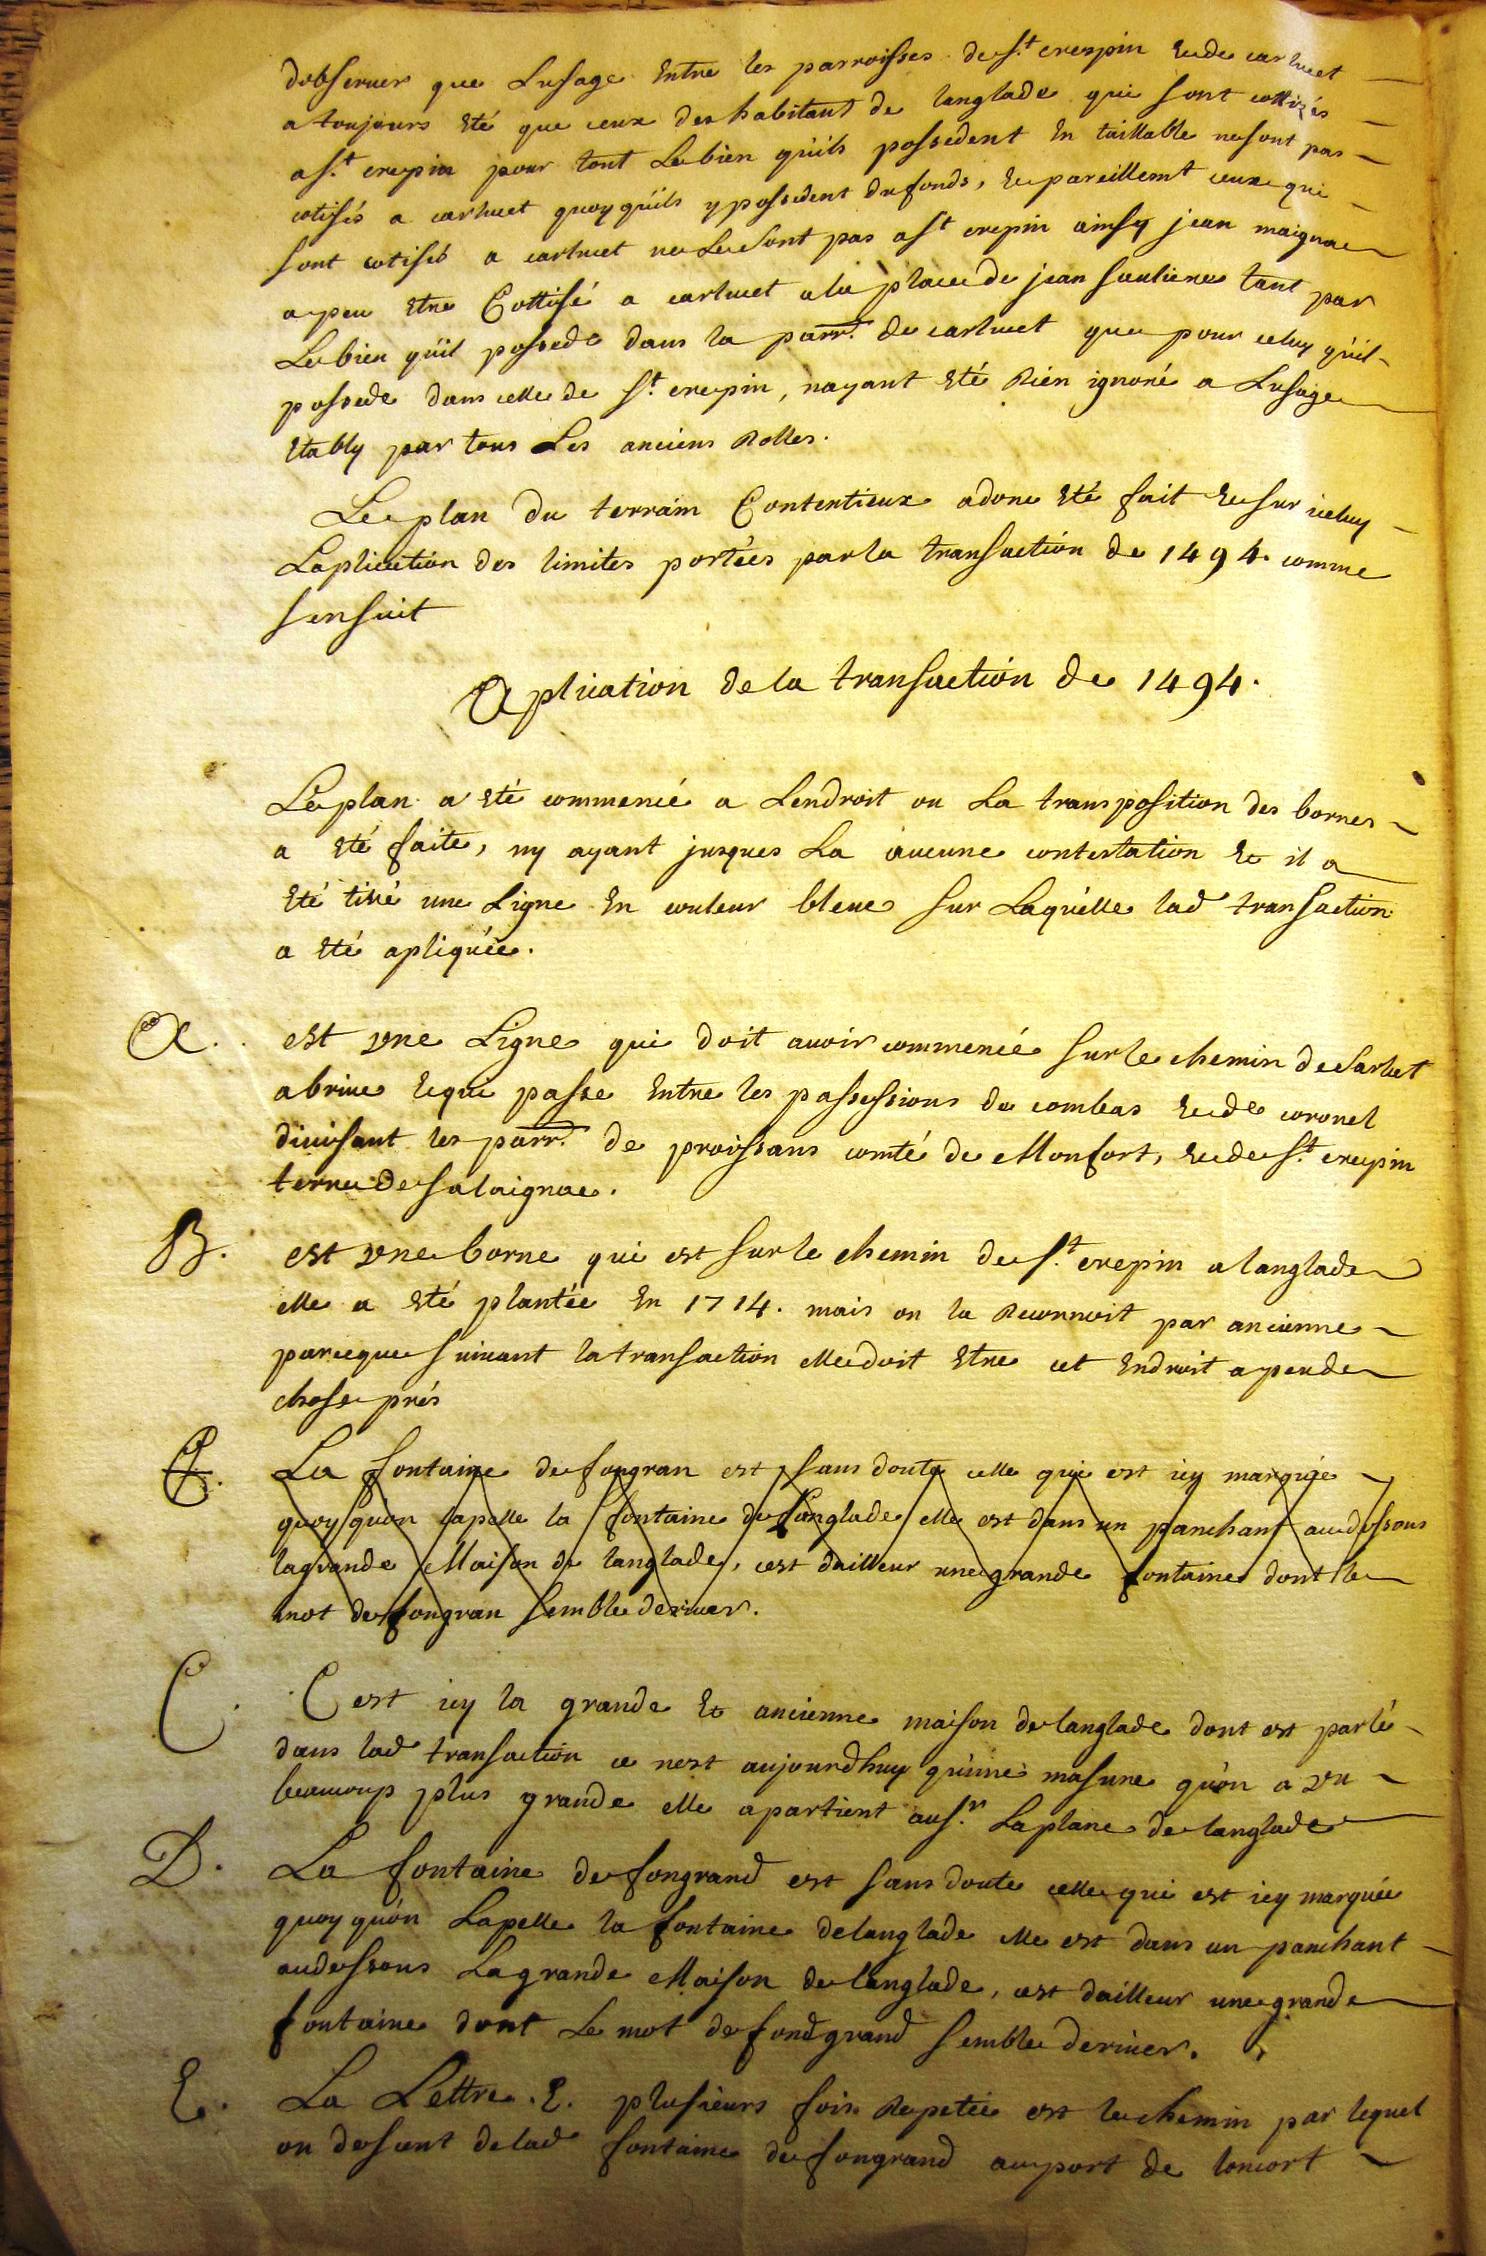 dobseruer que Lusage Entre les parroisses de st crespin Et de carlucet
a toujours Eté que ceux des habitant de langlade qui sont cottizés
a st. crepin pour tout Le bien quils possedent En taillable ne sont pas
cotisés a carlucet quoy quils y possedent du fonds, Et pareillemt ceux qui
sont cotisés a carlucet ne Le sont pas a st crepin ainsy jean maignac
a peu Etre Cottisé a carlucet a la place de jean souliere tant par
Le bien quil possede dans la parr. de carlucet que pour celuy quil
possede dans celle de st. crepin, nayant Eté Rien ignoré a Lusage
Etably par tous Les anciens Rolles.
Le plan du terrain Contentieux a donc Eté fait Et sur iceluy
Laplication des limites portées par la transaction de 1494. comme
sensuit
Aplication de la transaction de 1494.
Le plan a Eté commencé a Lendroit ou La transposition des bornes
a Eté faite, ny ayant jusques La aucune contestation Et il a
Eté tiré une Ligne En couleur bleue sur Laquelle lad transaction
a Eté apliquée.
A. est vne Ligne qui doit auoir commencé sur le chemin de Sarlat
a briue Et qui passe Entre les possessions de combas Et de coronel
diuisant les parr. de proissans comté de Monfort, Et de st. crepin
terre de salaignac.
B. est vne borne qui est sur le chemin de st. crepin a langlade
elle a Eté plantée En 1714. mais on la Reconnoit par ancienne
parce que suiuant la transaction elle doit Etre cet Endroit a peu de
chose prés
C. La fontaine de fongran est sans doute celle qui est icy marquée
quoy quon lapelle la fontaine de langlade elle est dans un panchant au dessous
la grande Maison de langlade, cest dailleur une grande fontaine dont le
mot de fongran semble deriuer.
C. Cest icy la grande Et ancienne maison de langlade dont est parlé
dans lad transaction ce nest aujourdhuy quune masure quon a vu
beaucoup plus grande elle apartient au sr. Laplane de langlade
D. La fontaine de fongrand est sans doute celle qui est icy marquée
quoy quon Lapelle la fontaine de langlade elle est dans un panchant
au dessous La grande Maison de langlade, cest dailleur une grande
fontaine dont Le mot de fondgrand semble deriuer.
E. La Lettre .E. plusieurs fois Repetée est le chemin par lequel
on descent de lad fontaine de fongrand au port de loncort